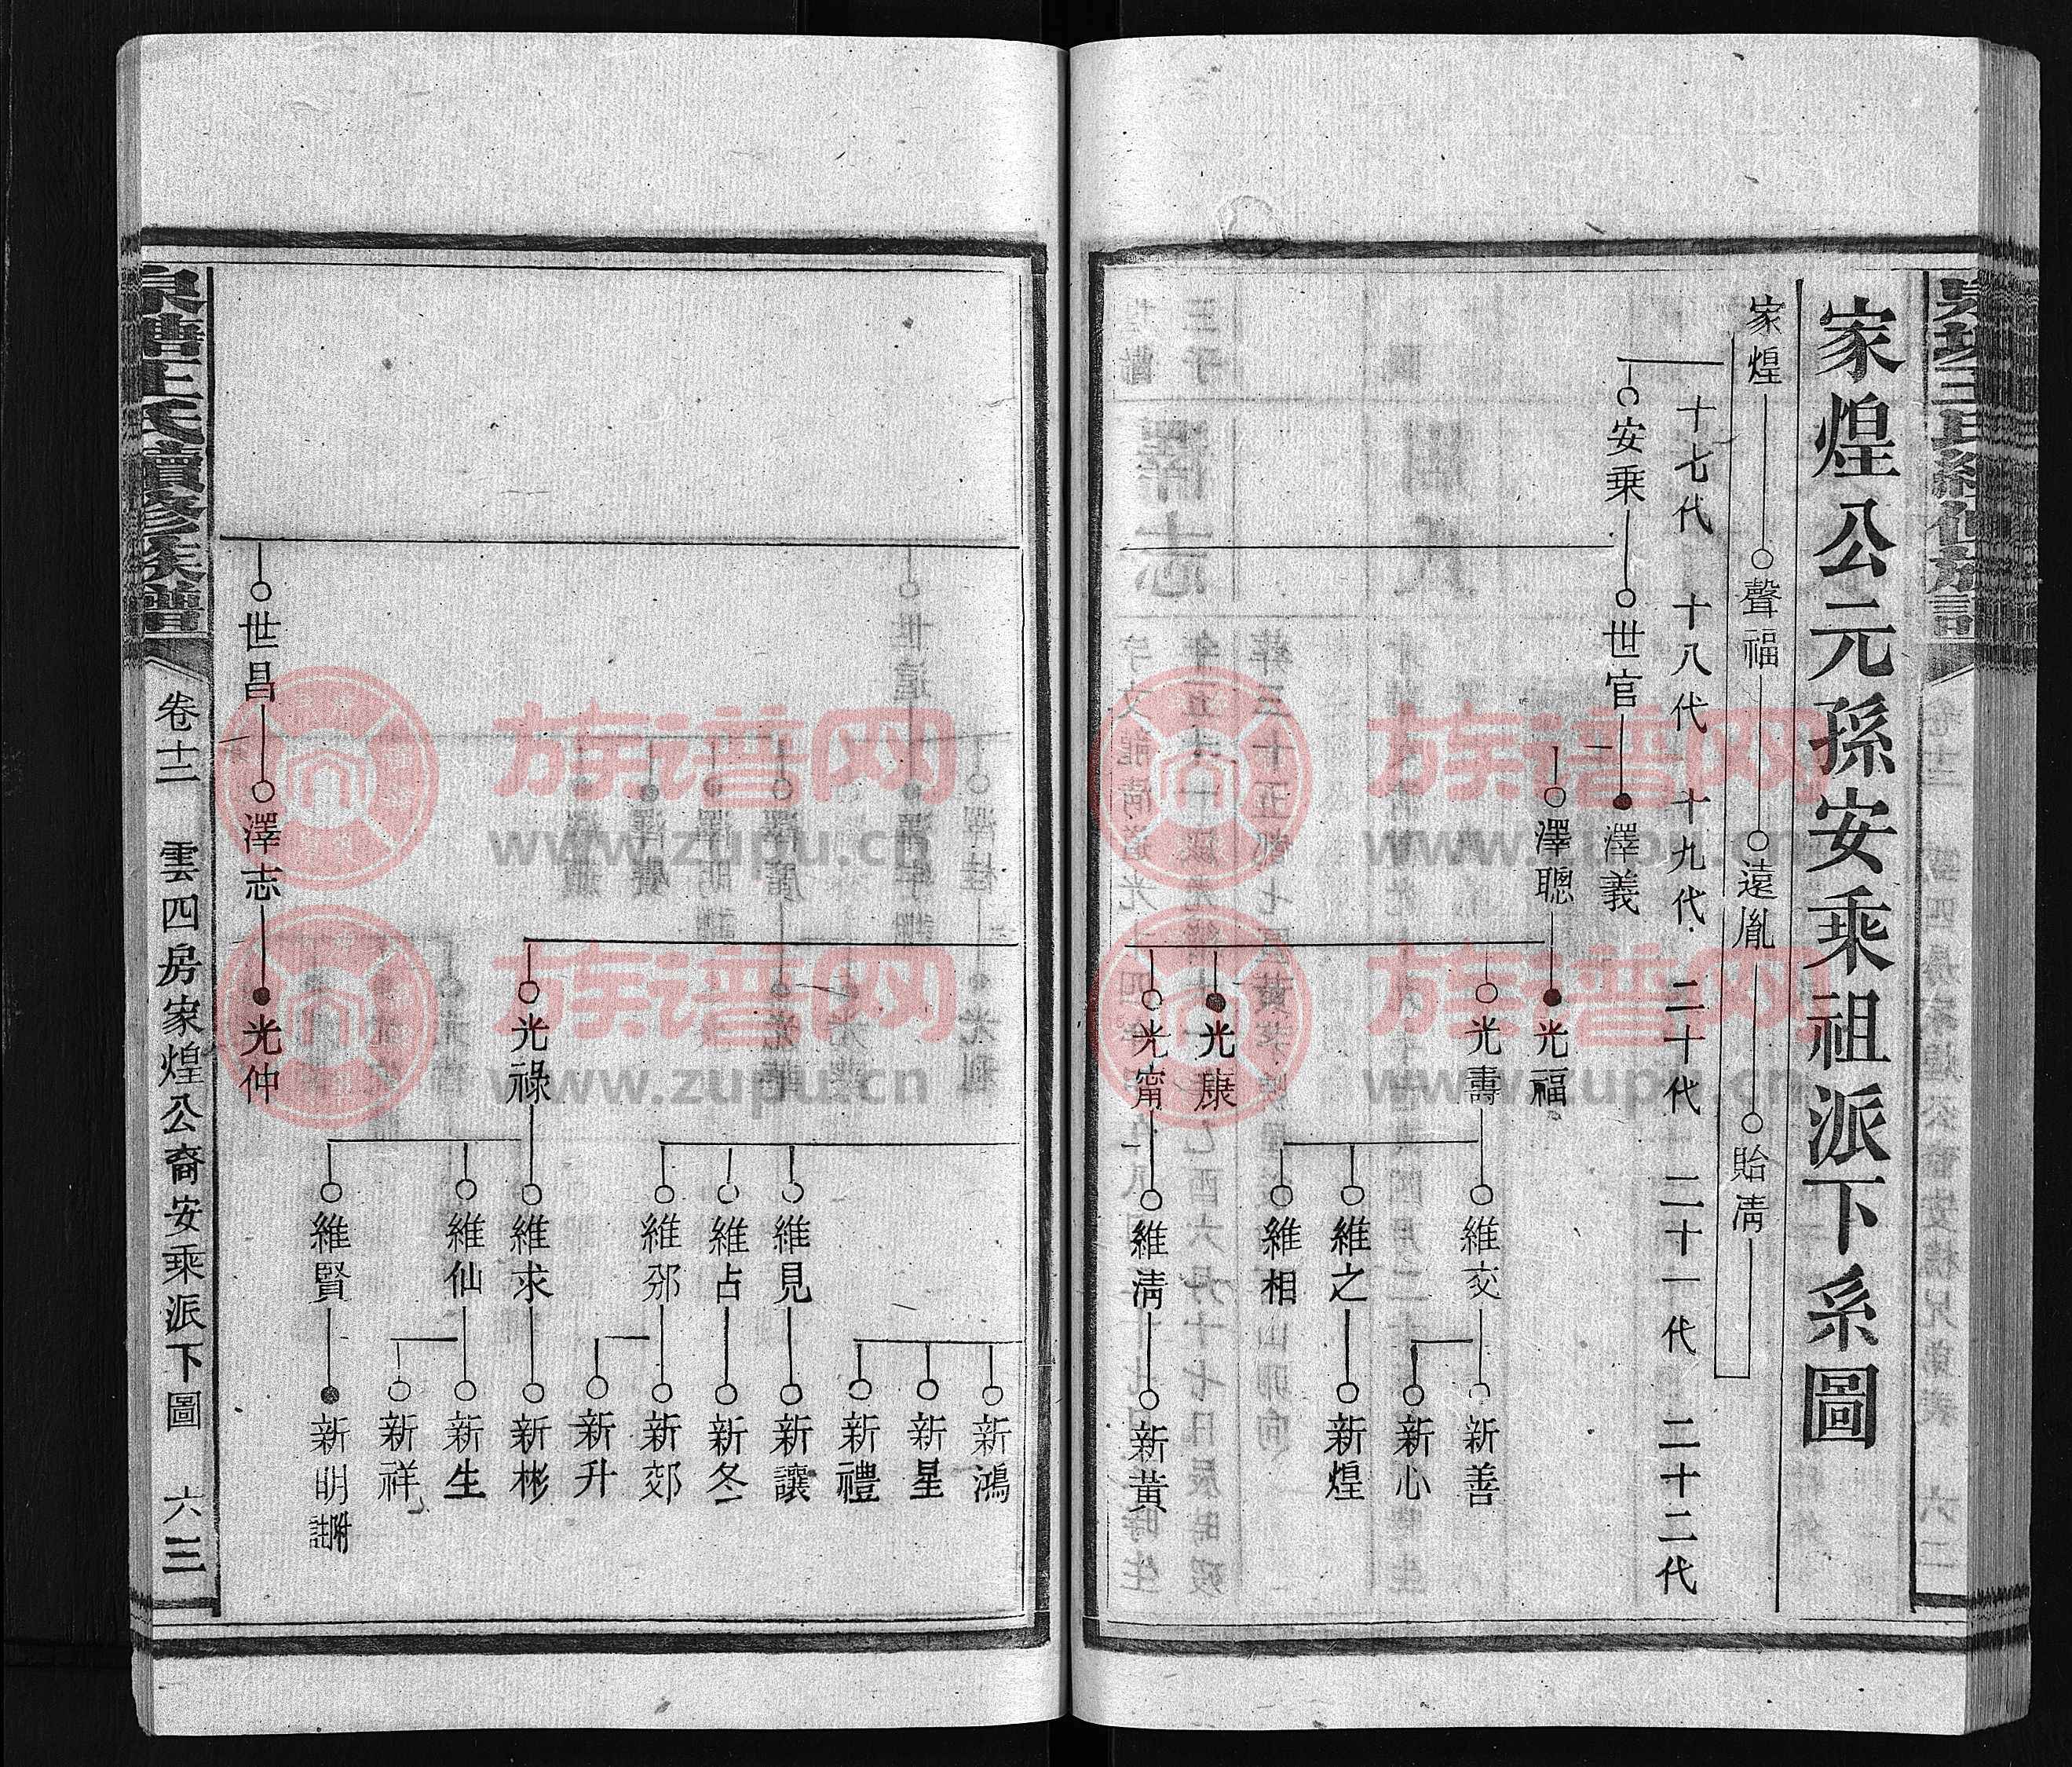 家煌公元孫安乘祖派下系圖
家煌
聲福
遠胤
貽淸
十七代
十八代
十九代
二十代
二十一代
二十二代
安乘
世官
澤義
澤聰
光福
光壽
維交
新善
新心
維之
新煌
維相
光康
光甯
維淸
新黃
新鴻
新星
新禮
維見
新讓
維占
新冬
維邠
新郊
新升
光祿
維求
新彬
維仙
新生
新祥
維賢
新明
附註
世昌
澤志
光仲
泉塘王氏續修族譜
卷十二
雲四房家煌公裔安乘派下圖
六三
族谱网
www.zupu.cn
族谱网
www.zupu.cn
族谱网
www.zupu.cn
族谱网
www.zupu.cn